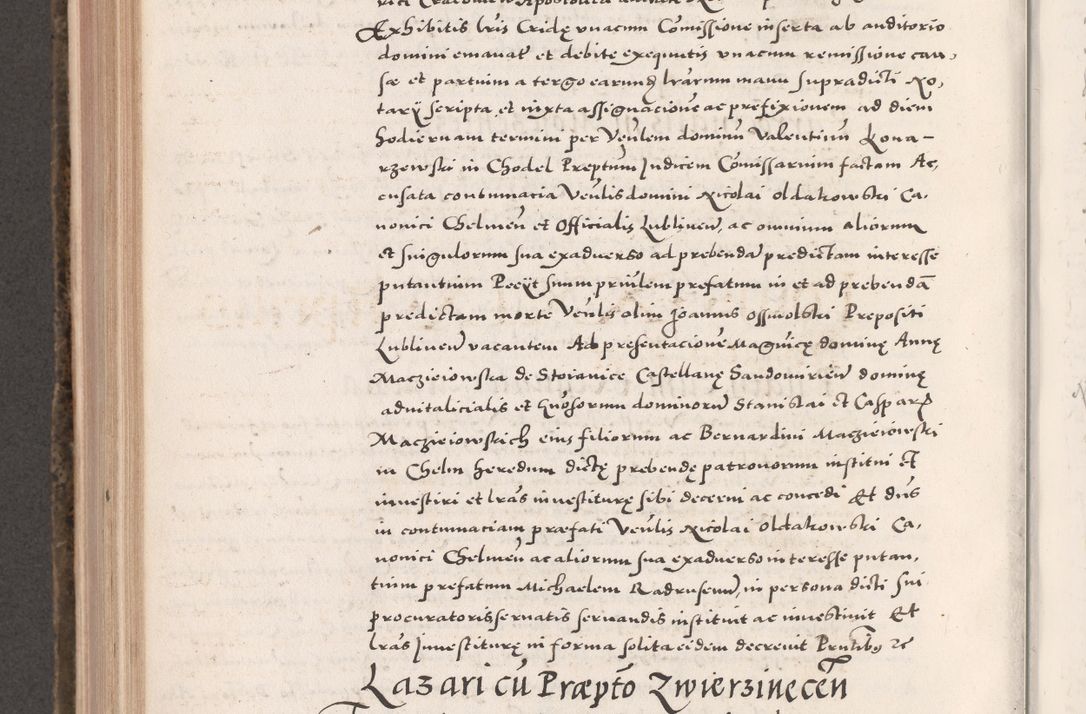 Exhibitis lris Cridę vnacum Comissione inserta ab auditorio
domini emanat et debite exequutis vnacum remissione cau,
sæ et partium a tergo earund lrarum manu supradicti No,
tarÿ scripta et iuxta assignacione ac prefixionem ad diem
hodiernam termini per Venlem dominũ Valentinũ Kona–
rzewski in Chodel Preptum Judicem Comissarium factam Ac,
cusata contumacia Venlis domini Nicolai oldakowski Ca,
nonici Chelmeñ et Officialis Lublineñ, ac omnium aliorum
et singulorum sua exaduerso ad prebendã predictam interesse
putantium Peeÿt suum priulem prefatum in et ad prebendã
predictam morte Venlis olim Joannis ossmolski Prepositi
Lublineñ vacantem Ad presentacione Magnicę dominę Annę
Macziejowska de Stoianice Castellanę Sandomirieñ dominę
aduitalicialis et Gnosorum dominorũ Stanislai et Caspari
Macziejowskich eius filiorum ac Bernardini Macziejowski
in Chelm heredum dictę prebendę patronorum institui et
inuestiri et lras inuestiturę sibi decerni ac concedi Et dns
in contumaciam præfati Venlis Nicolai Oldakowski Ca,
nonici Chelmeñ ac aliorum sua exaduerso interesse putan,
tium prefatum Michaelem Radruseum, in persona dicti sui
procuratoris seruatis seruandis instituit ac inuestiuit Et
lras Inuestiturę in forma solita eidem decreuit Pruntibus etc
Lazari cũ Præpto Zwierzineceñ